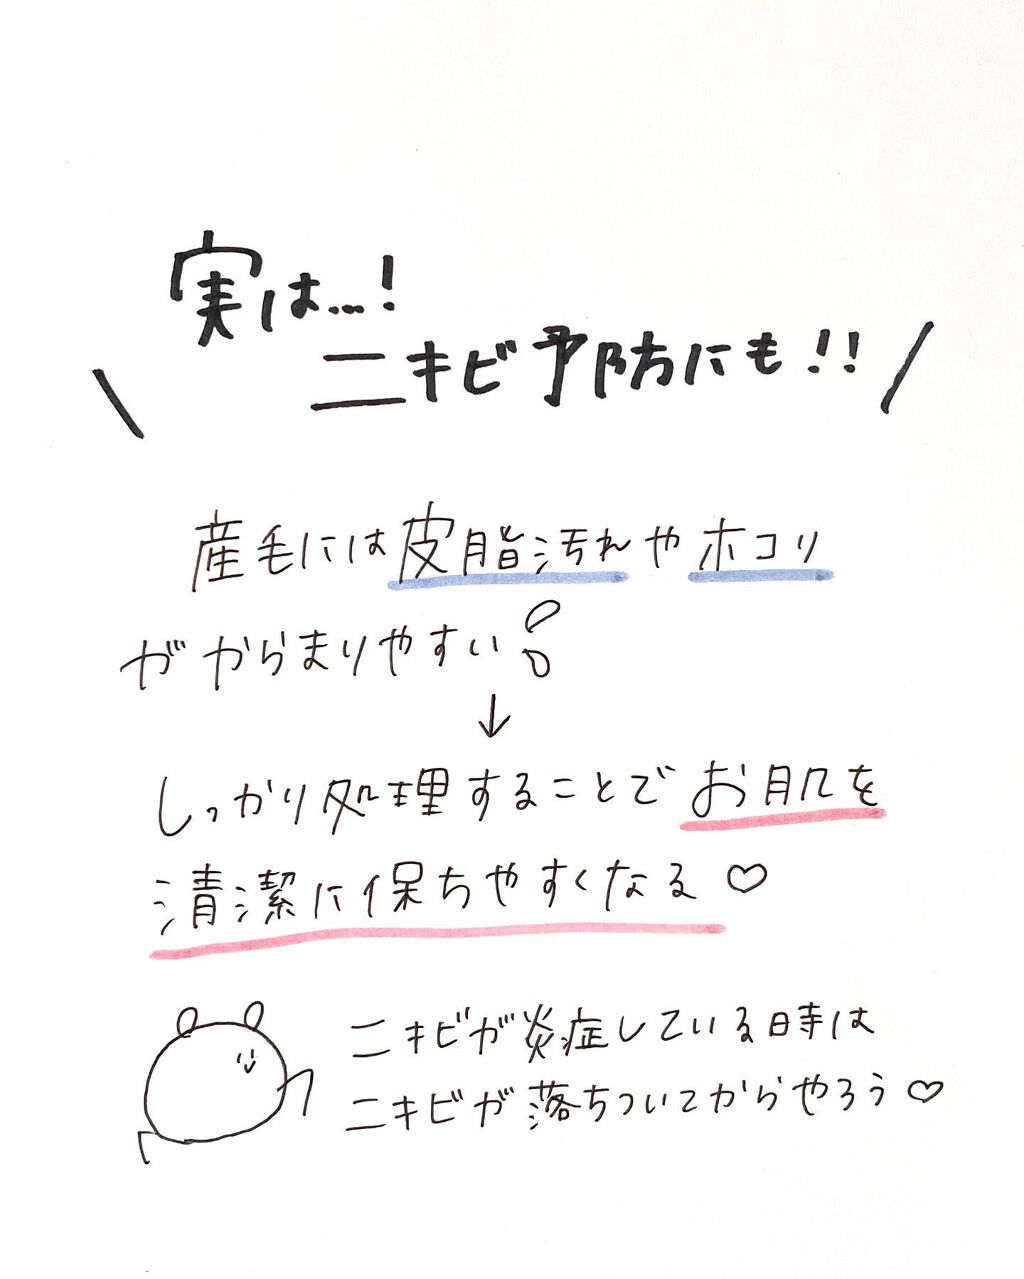 実は…!
ニキビ予防にも!!
産毛には皮脂汚れやホコリ
がからまりやすい!
↓
しっかり処理することでお肌を
清潔に保ちやすくなる♡
ニキビが炎症している時は
ニキビが落ちついてからやろう♡